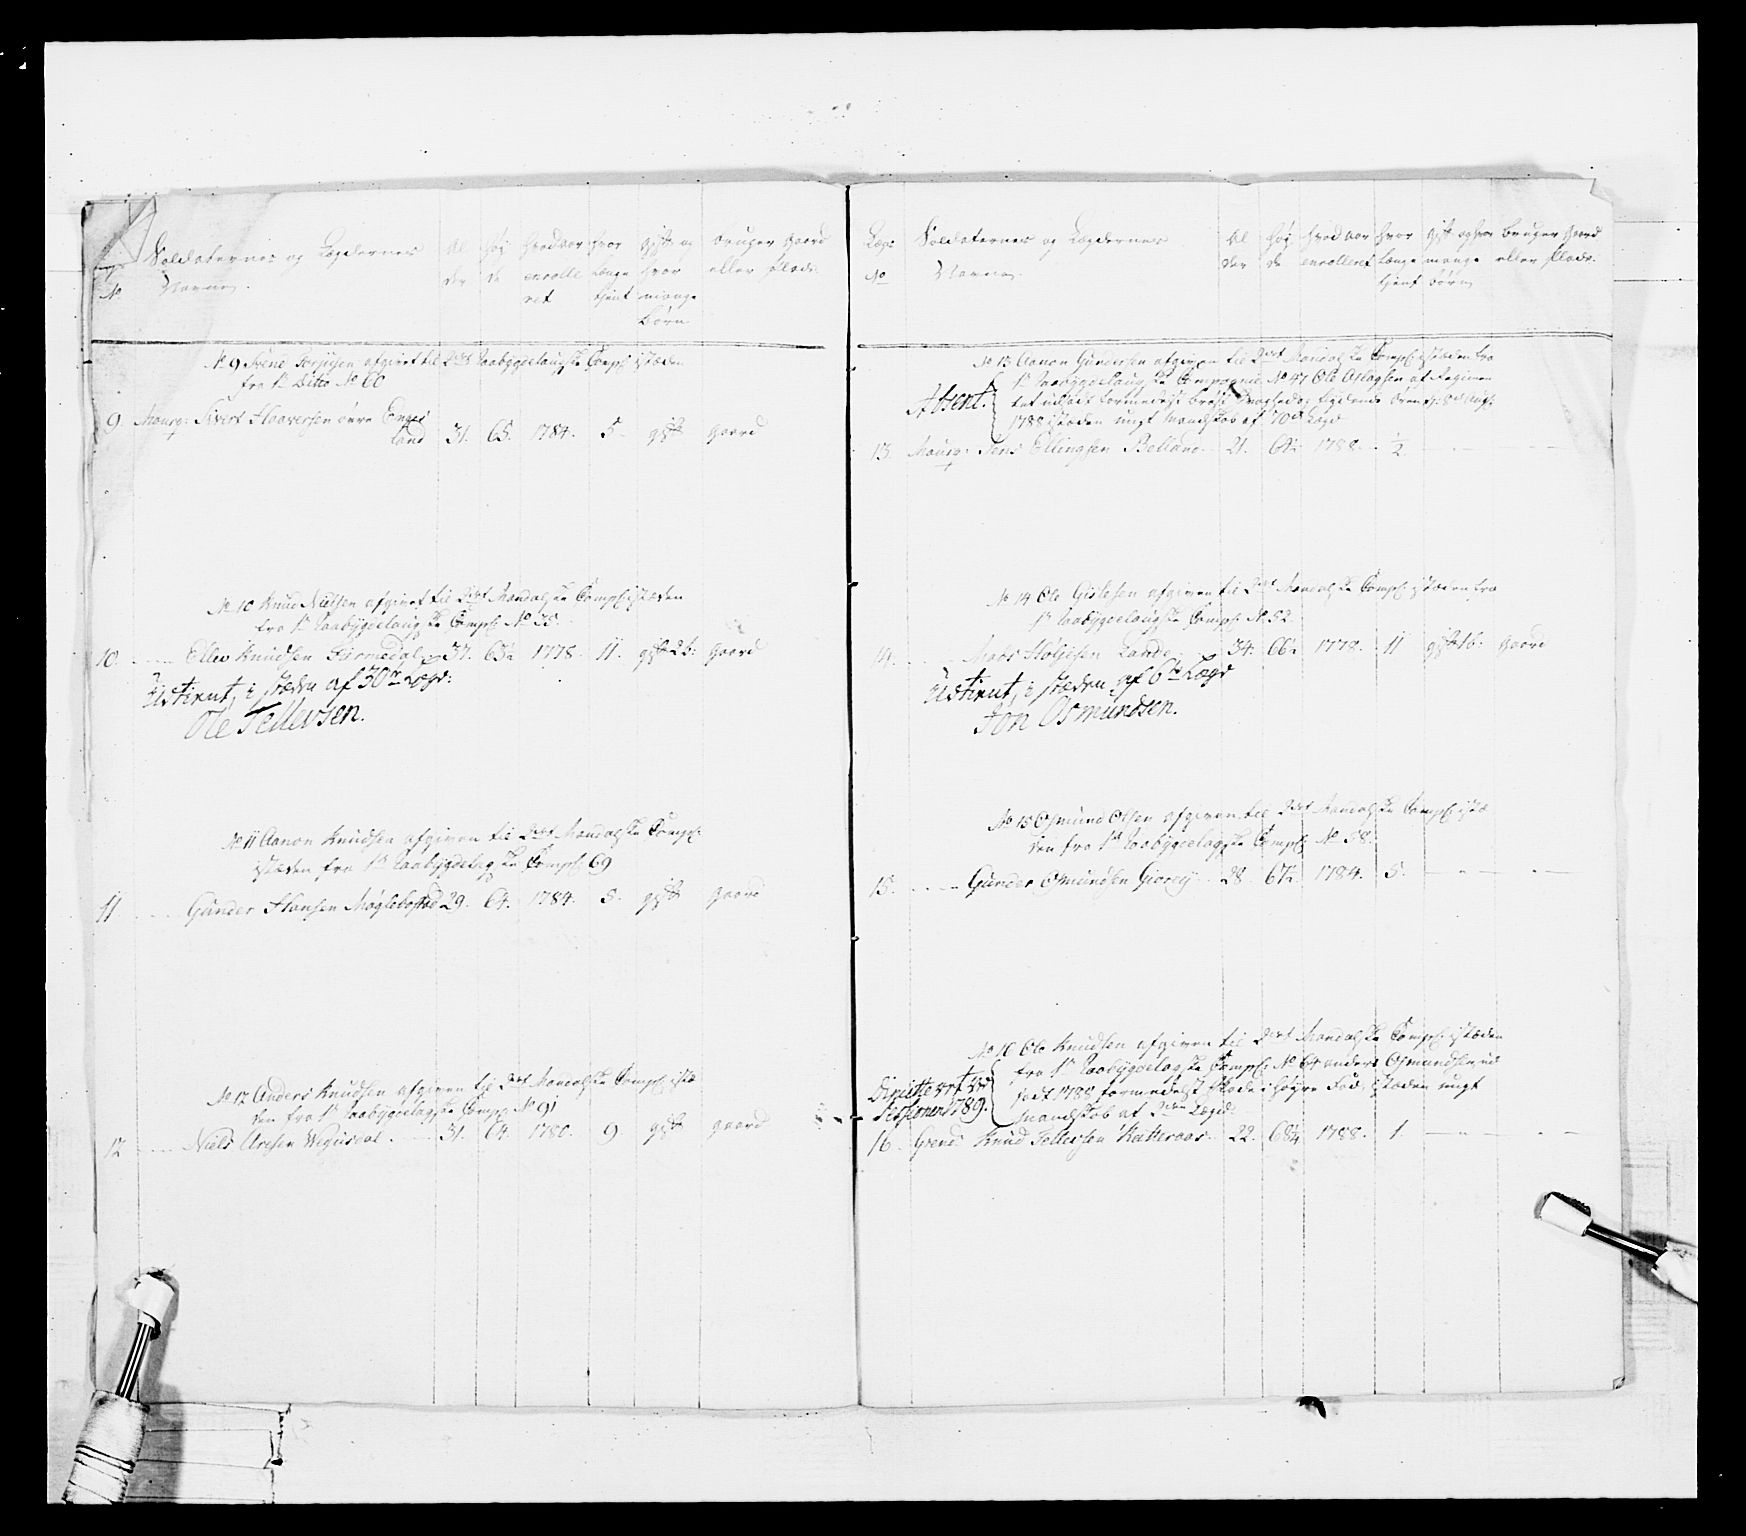 No
Soldaternes og Lægdernes
Navne.
Al
der
Høy
de
Hvad aar
enrolle
ret
hvor
længe
tient
gift og
hvor
mange
Børn
bruger gaard
eller Plads.
No 9 Svend Torjusen afgivet til 2det Raabygdelaugske Comp: isteden
fra 1te Ditto No 60
9. Mousq: Sivert Haaversen øvre Enges
land 31. 65. 1784. 5. gift gaard
No 10 Knud Nielsen afgivet til 2det Mandalske Comp: isteden
fra 1te Raabygdelaugske Comp: No 35.
10. Ellev Knudsen Furmedal 37. 63½ 1778. 11. gift 2b: gaard
Ustirut, i stæden af 30te Lægd:
Ole Tellevsen.
No 11 Aanon Knudsen afgiven til 2det Mandalske Comp:
isteden fra 1te Raabygdelagske Comp: 69
11 Gunder Hansen Møglebostad 29. 64. 1784. 5. gift gaard
No 12 Anders Knudsen afgiven til 2det Mandalske Comp: iste
den fra 1te Raabygdelagske Comp: No 91
12 Niels Aresen Wegusdal. 31. 64. 1780. 9 gift gaard
Læg:
No
Soldaternes og Lægdernes
Navne.
Al
der
Høy
de
Hvad aar
enrolleret
hvor
længe
tient
gift og hvor
mange
børn
bruger gaard
eller Plads.
No 13 Aanon Gundersen afgiven til 2det Mandalske Comp: isteden fra
1te Raabygdelaugske Compagnie No 47 Ole Aslagsen af Regimen
tet udsadt formedelst Bryst Svaghed
1788 isteden ungt Mandskab af 70de Lægd
Absent.
13. Mousq: Jens Ellingsen Betland 21. 1788. ½
No 14 Ole Gislesen afgiven til 2det Mandalske Comp: isteden fra
1te Raabygdelaugske Comp: No 52
14. Mads Støljesen Lande 34. 66½ 1778. 11 gift 1b: gaard
Ustirut, i stæden af 6te Lægd
Jon Osmundsen.
No 15 Osmund Olsen afgiven til 2det Mandalske Comp: iste
den fra 1te Raabygdelagske Comp: No 58.
15. Gunder Osmundsen 28. 67½ 1784. 5.
No 16 Ole Knudsen afgiven til 2det Mandalske Comp: isteden
fra 1te Raabygdelagske Comp: No 64 Anders Osmundsen ud
sadt 1788 formedelst Skade i høyre Fod, isteden ungt
Mandskab af Lægd:
Sessionen 1789.
16. Grend: Knud Tellefsen Katteraas 22. 68¼ 1788. 1.